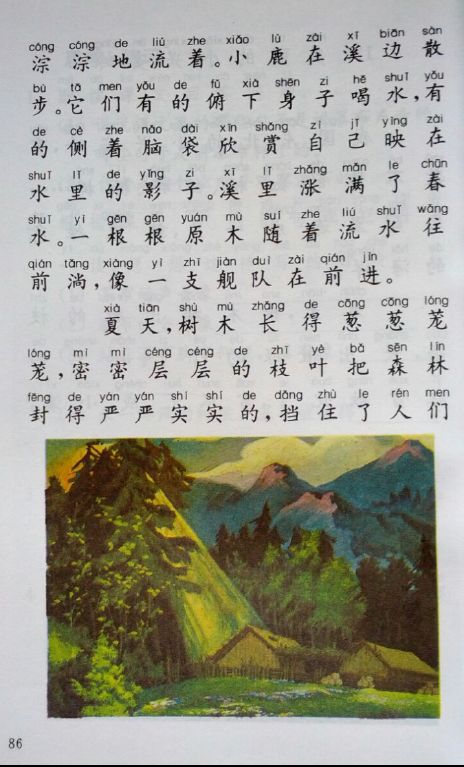 cóng cóng de liú zhe xiǎo lù zài xī biān sàn
淙淙地流着。小鹿在溪边散
bù tā men yǒu de fǔ xià shēn zi hē shuǐ yǒu
步。它们有的俯下身子喝水,有
de cè zhe nǎo dài xīn shǎng zì jǐ yìng zài
的侧着脑袋欣赏自己映在
shuǐ lǐ de yǐng zi xī lǐ zhǎng mǎn le chūn
水里的影子。溪里涨满了春
shuǐ yì gēn gēn yuán mù suí zhe liú shuǐ wǎng
水。一根根原木随着流水往
qián tǎng xiàng yì zhī jiàn duì zài qián jìn
前淌,像一支舰队在前进。
xià tiān shù mù zhǎng de cōng cōng lóng
夏天,树木长得葱葱茏
lóng mì mì céng céng de zhī yè bǎ sēn lín
茏,密密层层的枝叶把森林
fēng de yán yán shí shí de dǎng zhù le rén men
封得严严实实的,挡住了人们
86